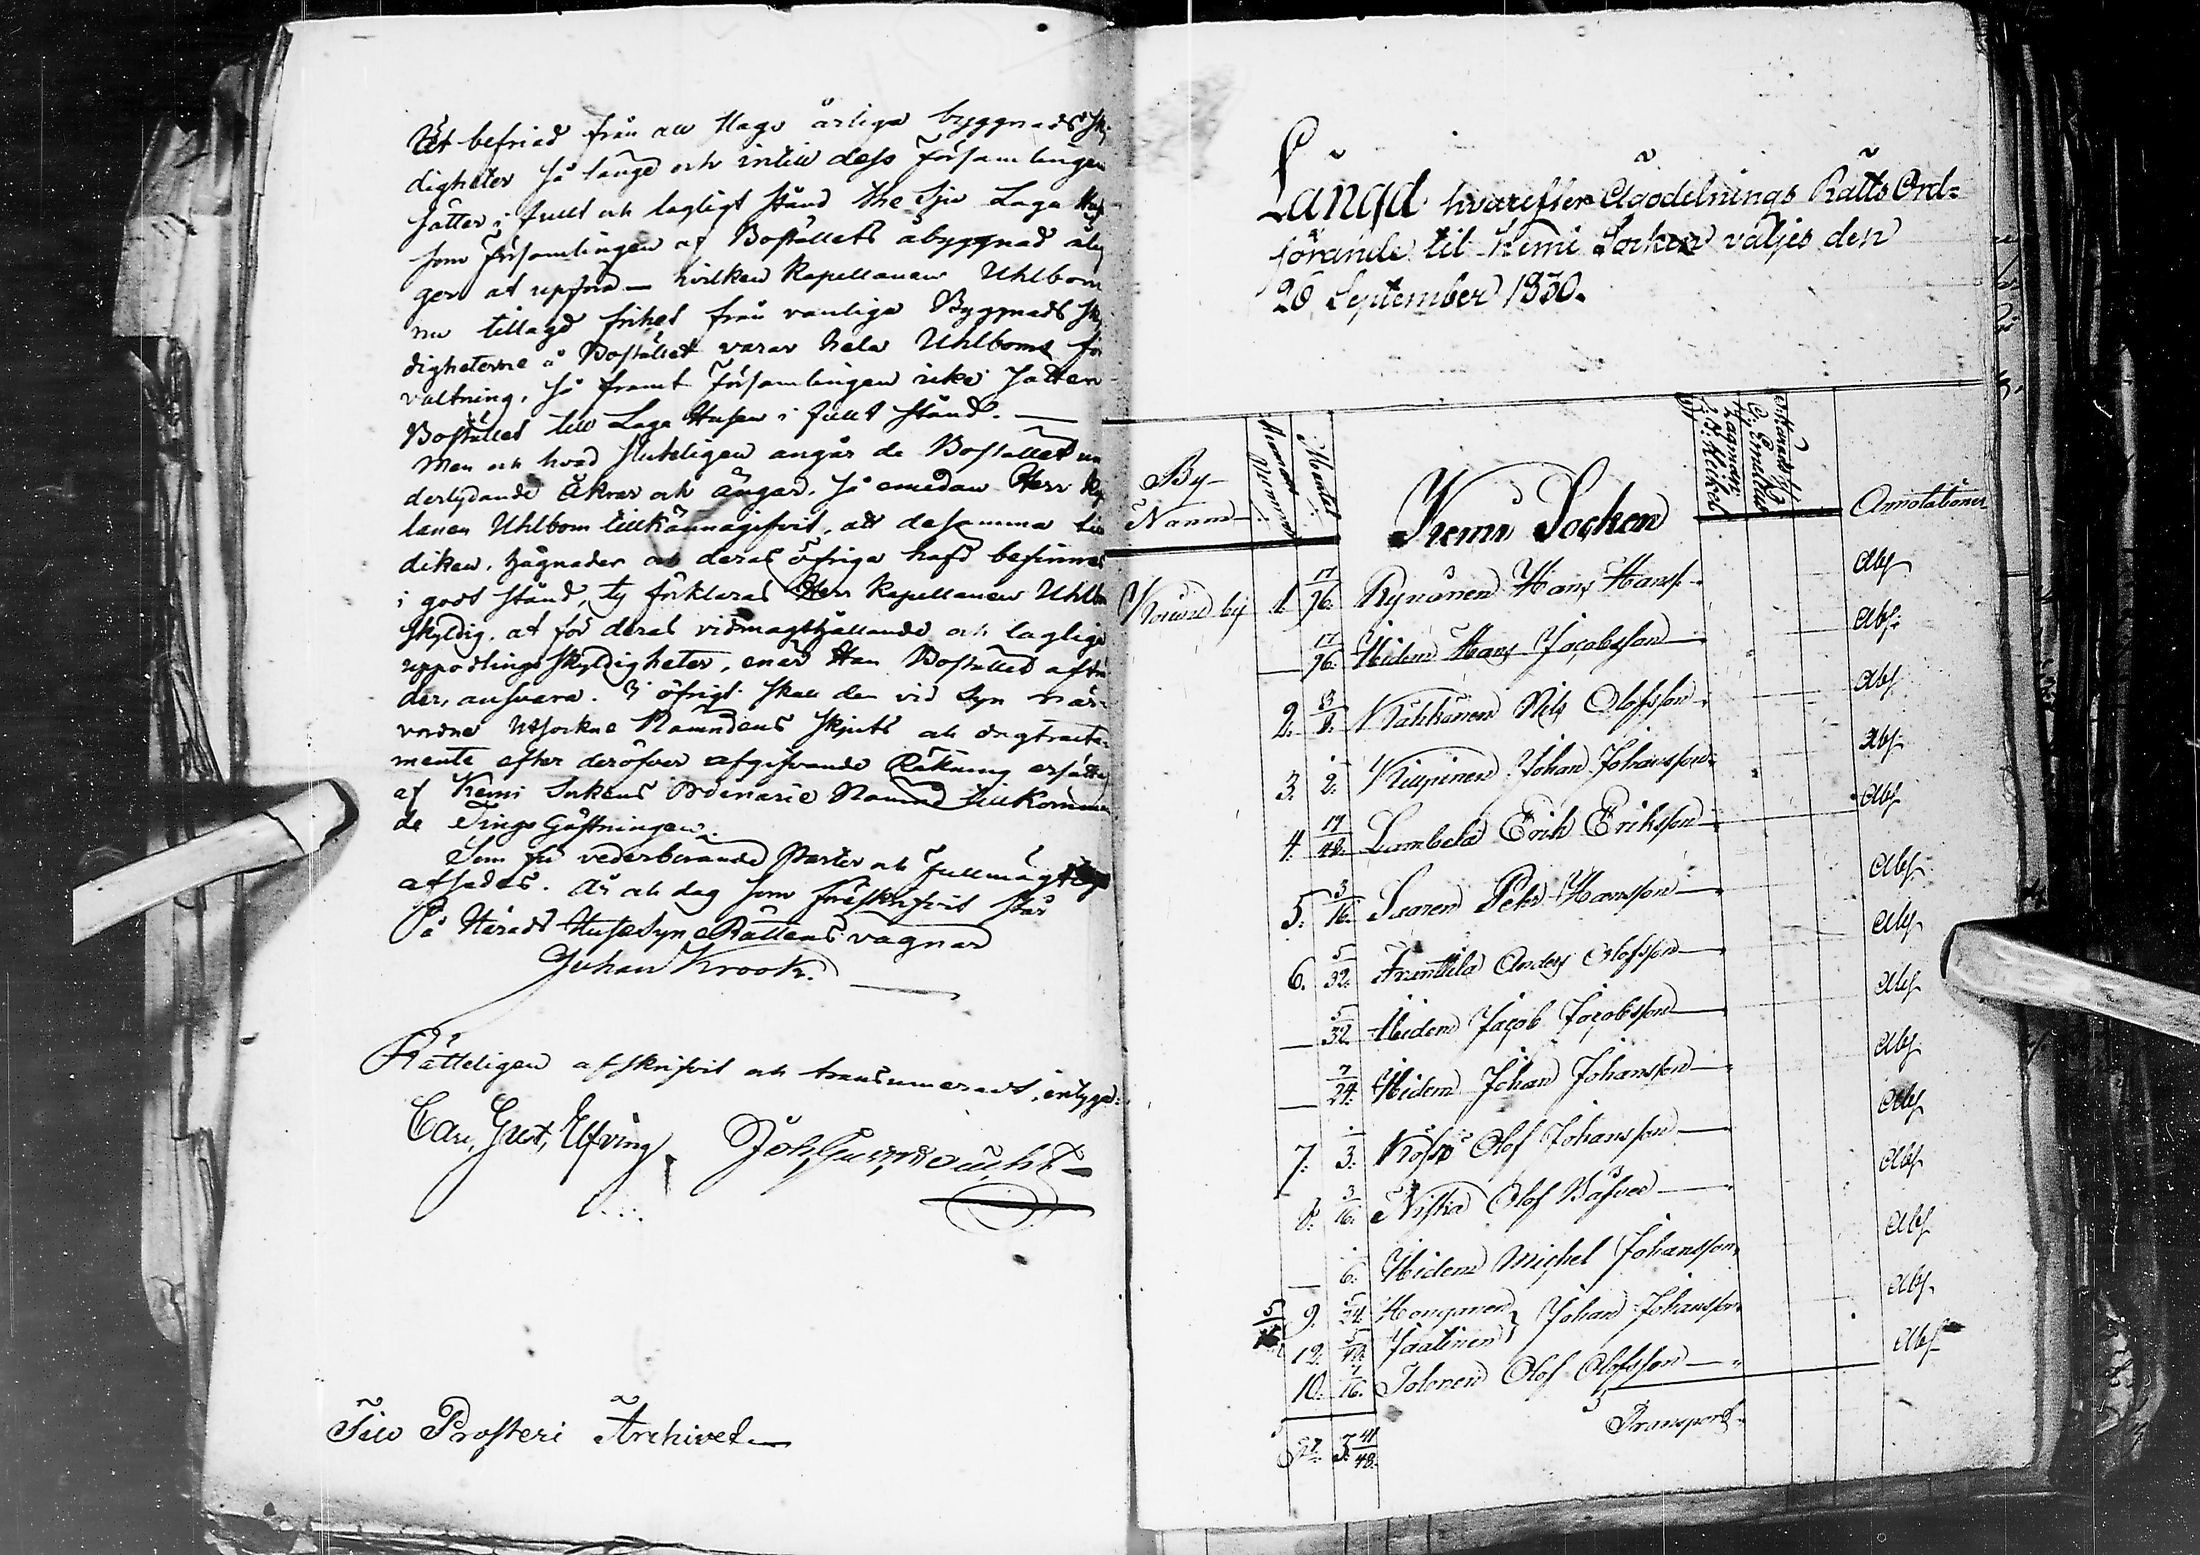 Ut befriad från all slags årliga byggnads sky
digheter så länge och intill dess Församlingen
sätter i fullt och lagligt stånd the sju Laga Hus
som Församlingen af Boställets åbyggnad ålig
ger at upföra — hvilken Kapellanen Uhlbom
nu tillagd frihet från vanliga Byggnads sky
digheterne å Bostället varar hela Uhlboms för
valtning, så framt Församlingen icke sätter
Bostället till Laga Husen i fullt stånd. —
Men och hvad sluteligen angår de Bostället un
derlydande Åkrar och ängar, så emedan Herr Kap
lanen Uhlbom tillkännagifvit, att desamma til
diken, hägnader och deras öfriga häfd befinnes
i godt stånd, ty förklaras Herr Kapellanen Uhlbom
skyldig, at för deras vidmagthållande och laglige
uppodlings skyldigheter, enär Han Bostället afträ
der, ansvara. I öfrigt skall den vid Syn när-
vordne utsockne Nämndens skjuts och dagtracta-
mente efter deröfver afgifvande Räkning ersättas
af Kemi Sockens Ordinarie Nämnd tillkomman
de Tings Gästningen.
Som för vederbörande Parter och Fullmägtige
afsades. År och dag som föreskrifvit står
På Härads Husesyns Rättens vägnar
Johan Krook.
Rätteligen afskrifvit och transumeradt, intyga:
Carl Gust, Elfving
Till Prosteri Archivet —
Längd hvarefter Ägodelnings Rätts Ord=
förande til Kemi Socken väljes den
26 September 1830.
By-
Namn
Hemans Nummer
Mantal
Kemi Socken
Annotationer
by 1. 17/96. Rynänen Hans Hanss. Abs
— 17/96. Ibidem Hans Jacobsson — Abs.
2. Kähkönen Nils Olofsson Abs
3. 2. Kilpinen Johan Johansson Abs
4. 17/48. Lambela Erik Eriksson Abs
5. 3/16. Saaren Petr Hansson — Abs
6. 5/32. Frenttilä Anders Olofsson — Abs
— 5/32 Ibidem Jacob Jacobsson — Abs
— 7/24. Ibidem Johan Johansson — Abs
7. 3. Olof Johansson — Abs
8. 3/16. Niska Olof Bäfver — Abs
— 6. Ibidem Michel Johansson Abs
9. 5/24. Honganen } Johan Johansson Abs
12. 5/48. Jaatinen
10. Jolonen Olof Olofsson — Abs
3 41/48. Transport